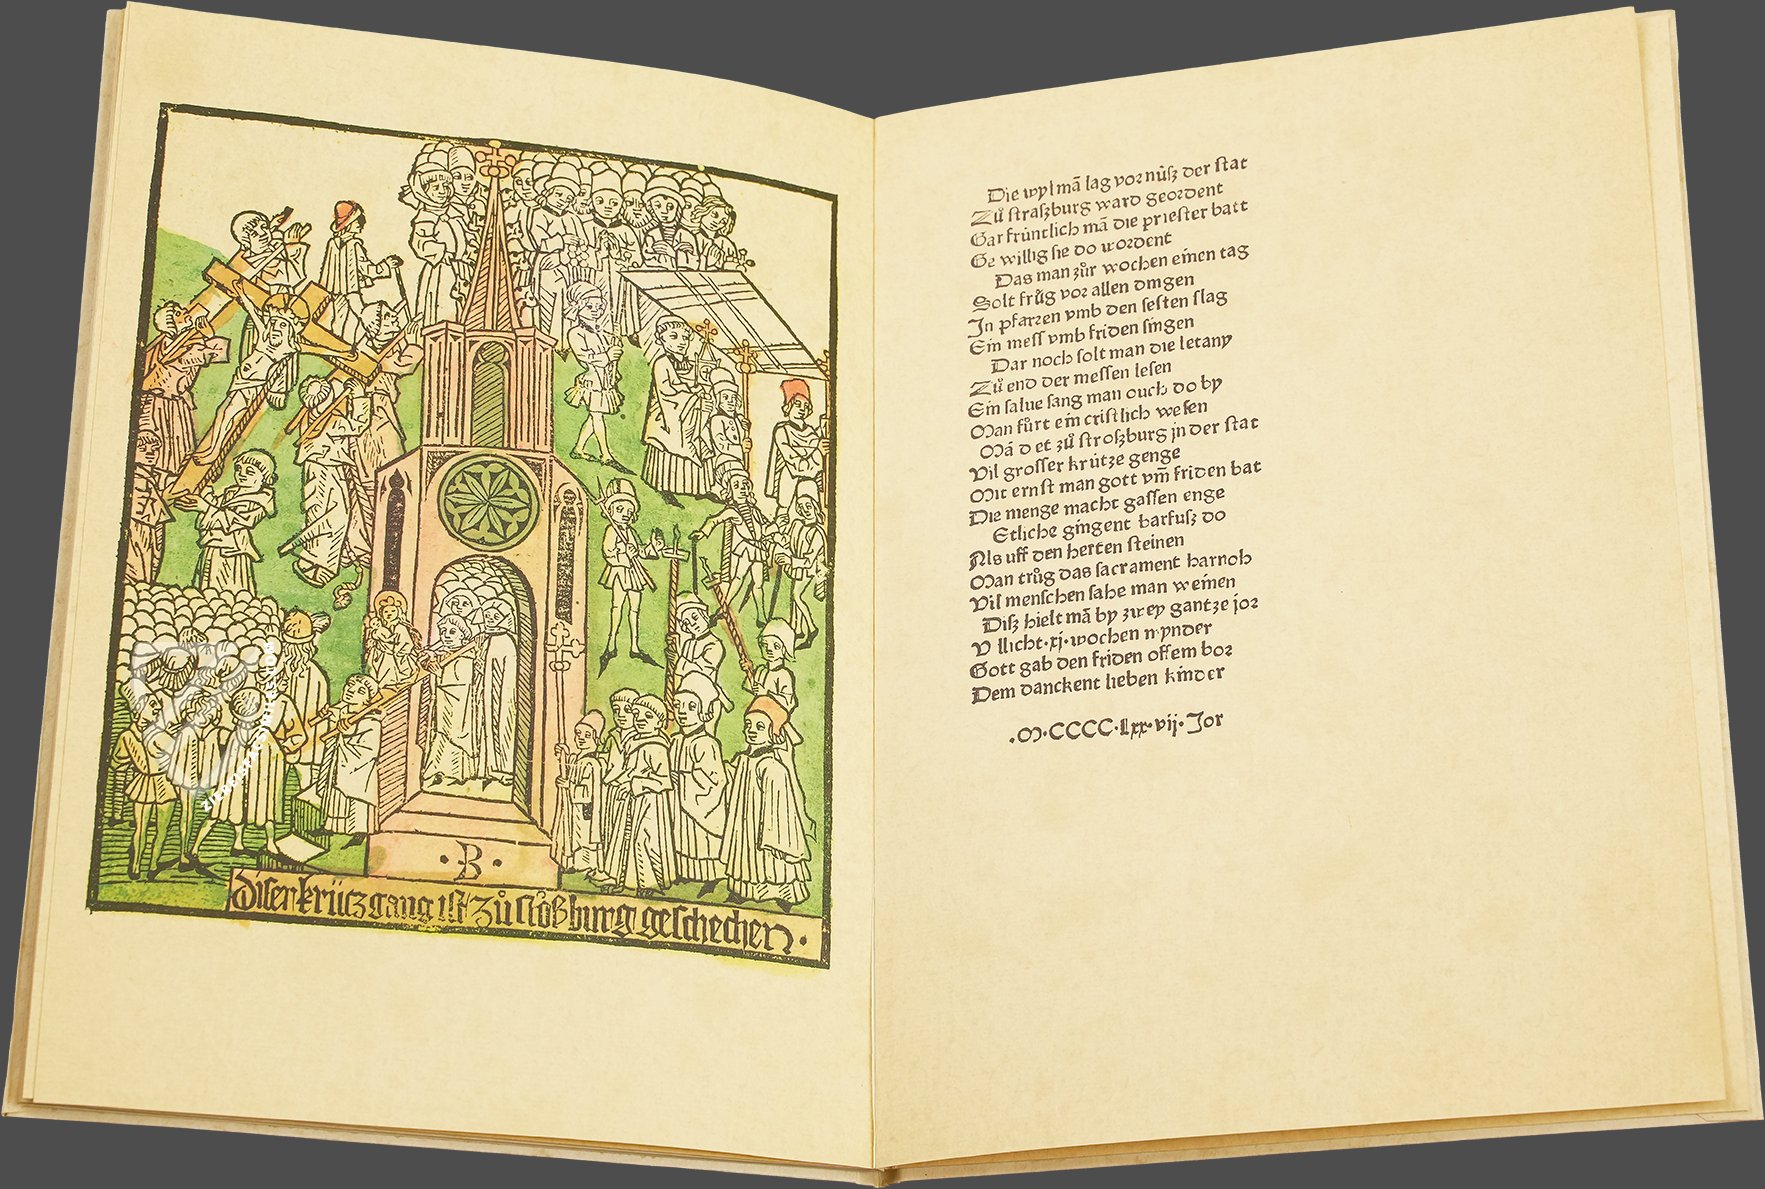 ·B·
Diser krütz gang ist zů stroßburg geschechen·
Die wyl mã lag vor nůsz der stat
Zů straszburg ward geordent
Gar frúntlich mã die priester batt
Ge willig sie do wordent
Das man zůr wochen einen tag
Solt frůg vor allen dingen
In pfarren vmb den sesten slag
Ein mess vmb friden singen
Dar noch solt man die letany
Zů end der messen lesen
Ein salue sang man ouch do by
Man fůrt ein cristlich wesen
Mã det zů stroszburg jn der stat
Vil grosser krútze genge
Mit ernst man gott vm̃ friden bat
Die menge macht gassen enge
Etliche gingent barfusz do
Als uff den herten steinen
Man trůg das sacrament harnoh
Vil menschen sahe man weinen
Disz hielt mã by zwey gantze jor
V llicht·xj·wochen mynder
Gott gab den friden offem bor
Dem danckent lieben kinder
·M·CCCC·lxx·vij·Jor